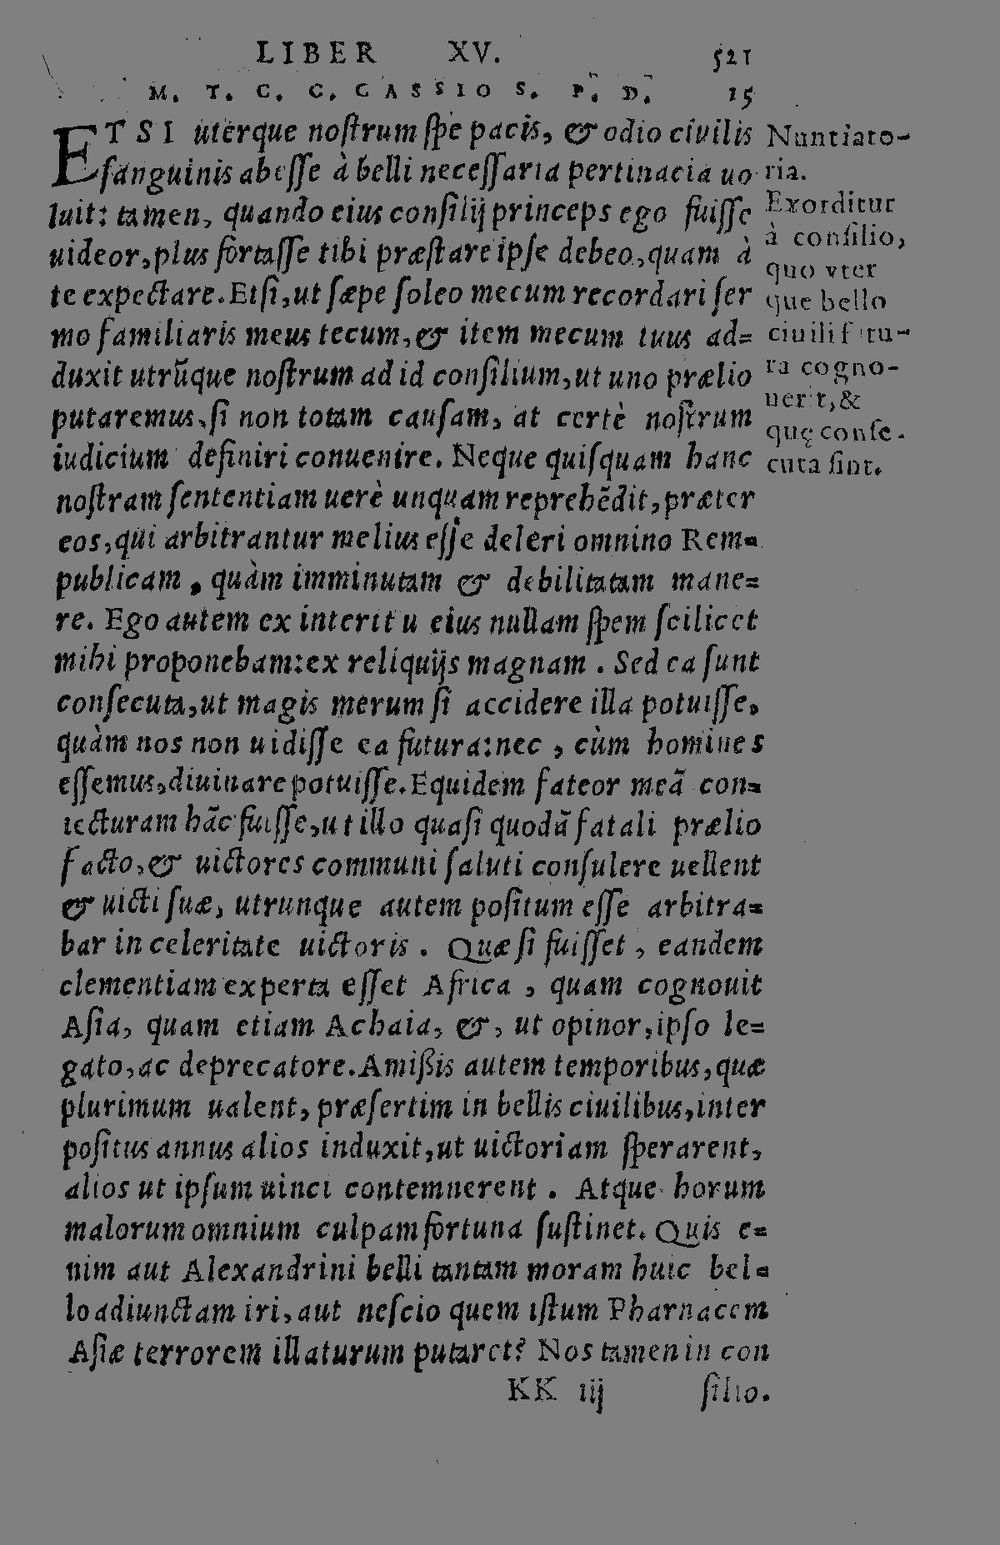 LIBER XV. 521
M. T. C. C. CASSIO S. P. D. 15
ETSI uterque nostrum spe pacis, & odio ciuilis
sanguinis abesse à belli necessaria pertinacia uo
luit: tamen, quando eius consilij princeps ego fuisse
uideor, plus fortasse tibi præstare ipse debeo, quam à
te expectare. Etsi, ut sæpe soleo mecum recordari ser
mo familiaris meus tecum, & item mecum tuus ad=
duxit utrũque nostrum ad id consilium, ut uno prælio
putaremus, si non totam causam, at certè nostrum
iudicium definiri conuenire. Neque quisquam hanc
nostram sententiam uerè unquam reprehẽdit, præter
eos, qui arbitrantur melius esse deleri omnino Rem=
publicam, quàm imminutam & debilitatam mane=
re. Ego autem ex interitu eius nullam spem scilicet
mihi proponebam: ex reliquijs magnam. Sed ea sunt
consecuta, ut magis merum si accidere illa potuisse,
quàm nos non uidisse ea futura: nec, cùm homines
essemus, diuinare potuisse. Equidem fateor meã con=
iecturam hãc fuisse, ut illo quasi quodã fatali prælio
facto, & uictores communi saluti consulere uellent
& uicti suæ, utrunque autem positum esse arbitra=
bar in celeritate uictoris. Quæ si fuisset, eandem
clementiam experta esset Africa, quam cognouit
Asia, quam etiam Achaia, &, ut opinor, ipso le=
gato, ac deprecatore. Amißis autem temporibus, quæ
plurimum ualent, præsertim in bellis ciuilibus, inter
positus annus alios induxit, ut uictoriam sperarent,
alios ut ipsum uinci contemnerent. Atque horum
malorum omnium culpam fortuna sustinet. Quis e=
nim aut Alexandrini belli tantam moram huic bel=
lo adiunctam iri, aut nescio quem istum Pharnacem
Asiæ terrorem illaturum putaret? Nos tamen in con
KK iij silio.
Nuntiato-
ria.
Exorditur
à consilio,
quo vter
que bello
ciuili futu-
ra cogno-
uerit, &
quę conse-
cuta sint.